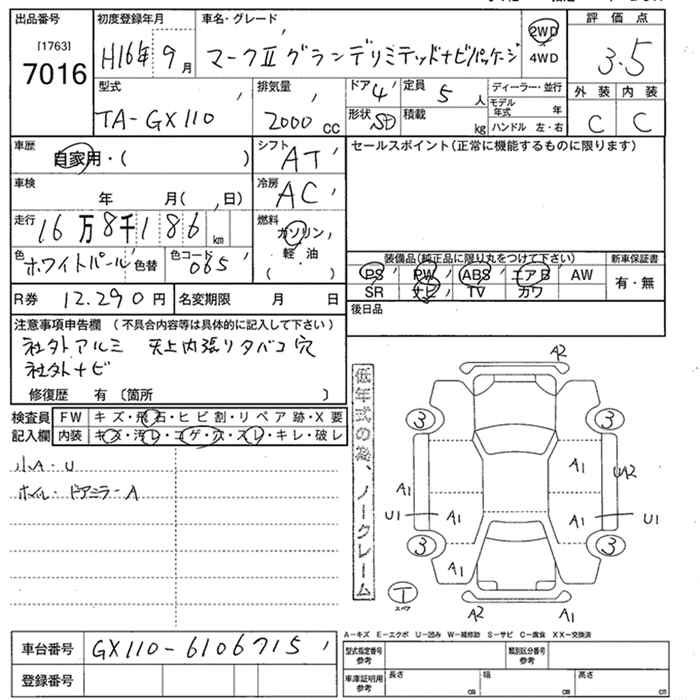 出品番号
[1763]
7016
初度登録年月
H16年 9月
車名・グレード
マークⅡ グランデリミテッドナビパッケージ
2WD
4WD
評価点
3.5
外装 内装
C C
型式
TA-GX110
排気量
2000 CC
ドア 4
形状 SD
定員 5 人
積載 kg
ディーラー・並行
モデル年式 年
ハンドル 左・右
車歴
自家用・( )
シフト AT
車検 年 月( , 日)
冷房 AC
走行 16万8千186 km
燃料
ガソリン,
軽・油
( )
色 ホワイトパール 色替
色コード 065
R券 12,290円
名変期限 月 日
セールスポイント(正常に機能するものに限ります)
装備品(純正品に限り丸をつけて下さい)
PS PW ABS エアB AW
SR ナビ TV カワ
新車保証書
有・無
後日品
注意事項申告欄 (不具合内容等は具体的に記入して下さい)
社外アルミ 天上内張りタバコ穴
社外ナビ
修復歴 有 〔箇所 〕
検査員記入欄
FW キズ・飛石・ヒビ割・リペア跡・X要
内装 キズ・汚レ・コゲ・穴・スレ・キレ・破レ
小A・U
ホイル・ドアミラーA
低年式の為、ノークレーム
A2
3 3
A1 UA2
A1
U1 A1 A1 U1
3 3
A1
T
スペア
A2 A1
A-キズ E-エクボ U-凹み W-補修跡 S-サビ C-腐食 XX-交換済
車台番号 GX110-6106715
登録番号
型式指定番号 参考
類別区分番号 参考
車庫証明用 参考
長さ cm 幅 cm 高さ cm